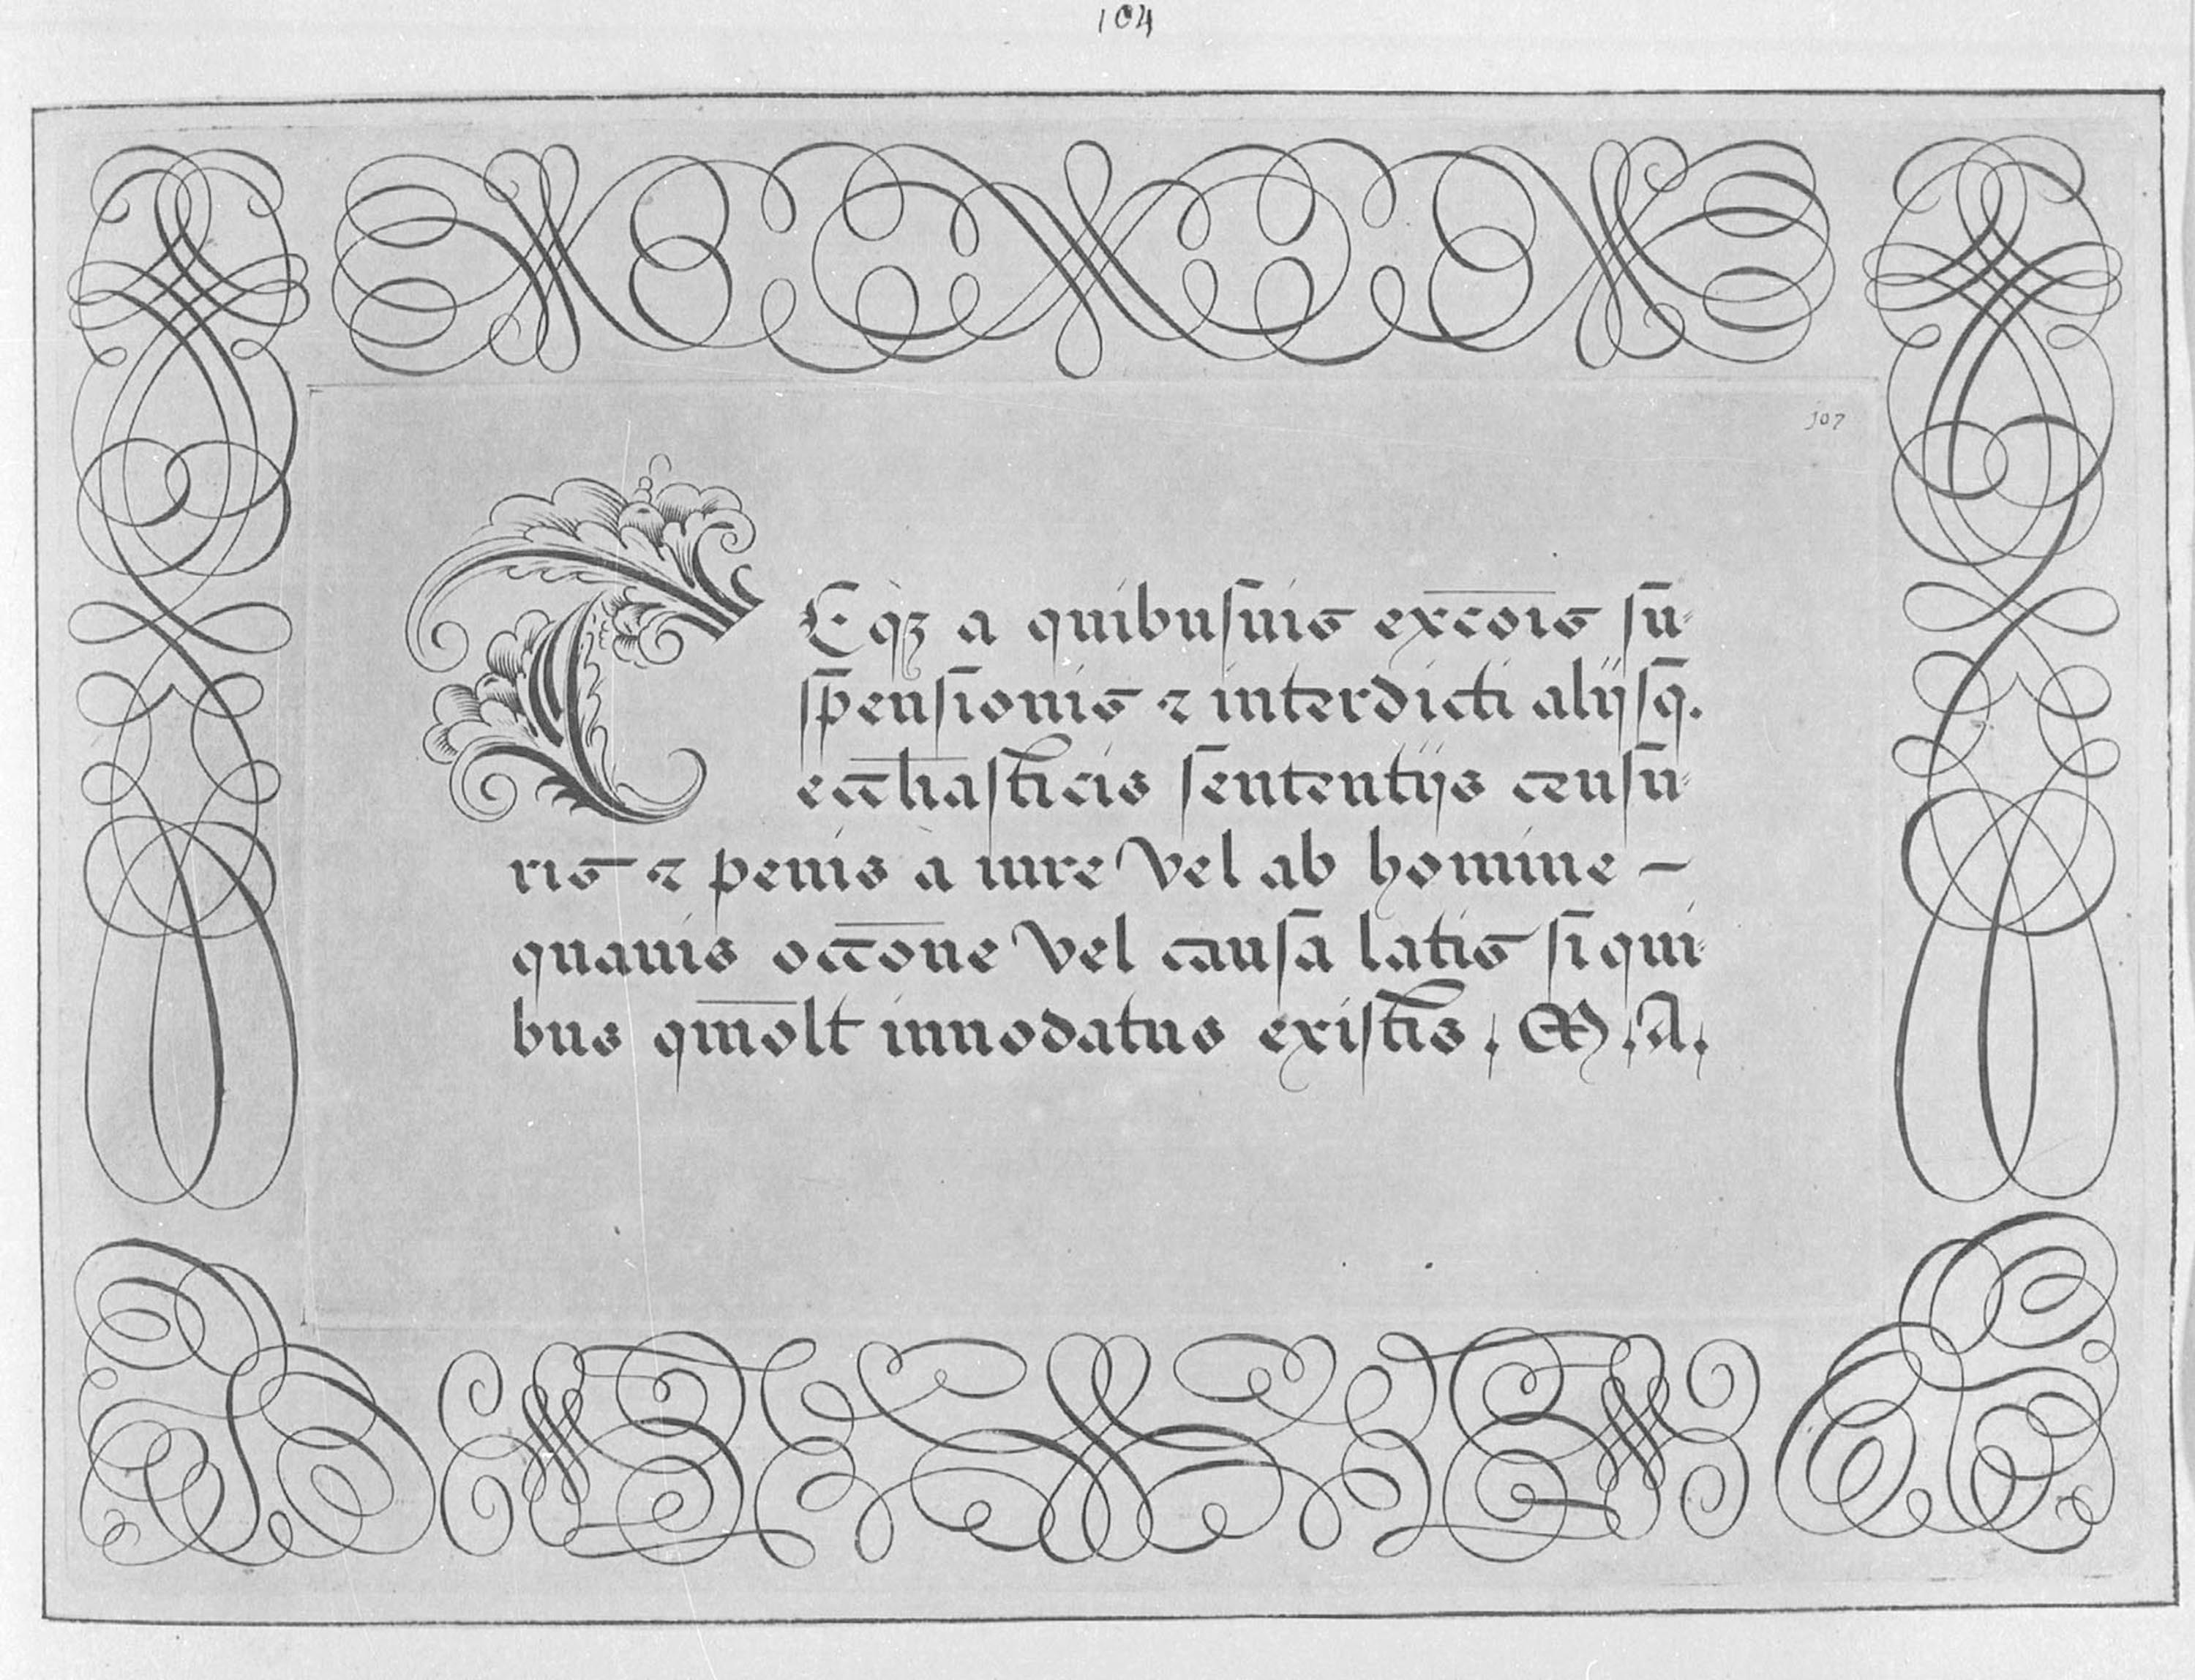 104
107
TEq̀ꝫ a quibuſuis excōis ſu⸗
ſpenſionis ⁊ interdicti aliiſq.
eccl̄iaſticis ſententijs cenſu⸗
ris ⁊ penis à iure vel ab homine –
quauis occōne vel cauſa latis ſi qui⸗
bus qm̄olt innodatus existis. M. A.